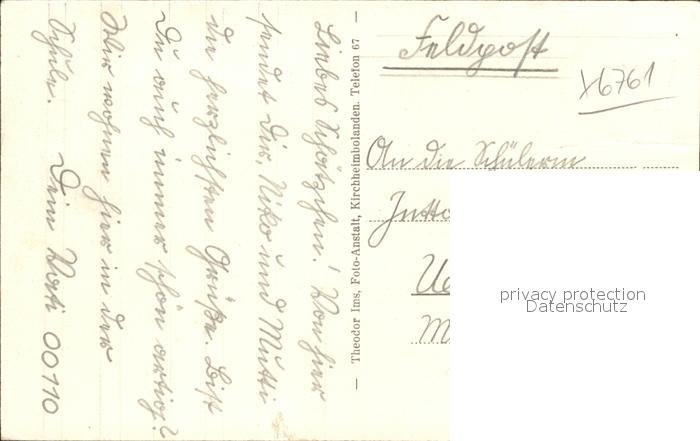 Liebes Schätzchen! Von hier
sendet Dir Niko und Mutti
die herzlichsten Grüße. Bist
Du auch immer schön artig?
Wir wohnen hier in der
Schule. Dein Vati 00110
— Theodor Ims, Foto-Anstalt, Kirchheimbolanden. Telefon 67 —
Feldpost
X6761
An die Schülerin
Jutta
privacy protection
Datenschutz